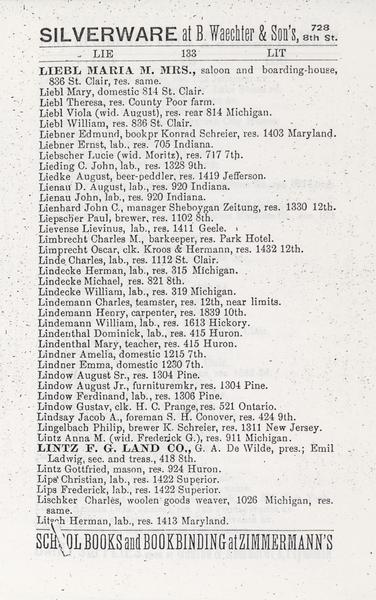 SILVERWARE at B. Waechter & Son's, 728 8th St.
LIE 133 LIT
LIEBL MARIA M. MRS., saloon and boarding-house,
836 St. Clair, res. same.
Liebl Mary, domestic 814 St. Clair.
Liebl Theresa, res. County Poor farm.
Liebl Viola (wid. August), res. rear 814 Michigan.
Liebl William, res. 836 St. Clair.
Liebner Edmund, bookpr Konrad Schreier, res. 1403 Maryland.
Liebner Ernst, lab., res. 705 Indiana.
Liebscher Lucie (wid. Moritz), res. 717 7th.
Lieding C. John, lab., res. 1328 9th.
Liedke August, beer-peddler, res. 1419 Jefferson.
Lienau D. August, lab., res. 920 Indiana.
Lienau John, lab., res. 920 Indiana.
Lienhard John C., manager Sheboygan Zeitung, res. 1330 12th.
Liepscher Paul, brewer, res. 1102 8th.
Lievense Lievinus, lab., res. 1411 Geele.
Limbrecht Charles M., barkeeper, res. Park Hotel.
Limprecht Oscar, clk. Kroos & Hermann, res. 1432 12th.
Linde Charles, lab., res. 1112 St. Clair.
Lindecke Herman, lab., res. 315 Michigan.
Lindecke Michael, res. 821 8th.
Lindecke William, lab., res. 319 Michigan.
Lindemann Charles, teamster, res. 12th, near limits.
Lindemann Henry, carpenter, res. 1839 10th.
Lindemann William, lab., res. 1613 Hickory.
Lindenthal Dominick, lab., res. 415 Huron.
Lindenthal Mary, teacher, res. 415 Huron.
Lindner Amelia, domestic 1215 7th.
Lindner Emma, domestic 1230 7th.
Lindow August Sr., res. 1304 Pine.
Lindow August Jr., furnituremkr, res. 1304 Pine.
Lindow Ferdinand, lab., res. 1306 Pine.
Lindow Gustav, clk. H. C. Prange, res. 521 Ontario.
Lindsay Jacob A., foreman S. H. Conover, res. 424 9th.
Lingelbach Philip, brewer K. Schreier, res. 1311 New Jersey.
Lintz Anna M. (wid. Frederick G.), res. 911 Michigan.
LINTZ F. G. LAND CO., G. A. De Wilde, pres.; Emil
Ladwig, sec. and treas., 418 8th.
Lintz Gottfried, mason, res. 924 Huron.
Lips Christian, lab., res. 1422 Superior.
Lips Frederick, lab., res. 1422 Superior.
Lischker Charles, woolen goods weaver, 1026 Michigan, res.
same.
Litsch Herman, lab., res. 1413 Maryland.
SCHOOL BOOKS and BOOKBINDING at ZIMMERMANN'S